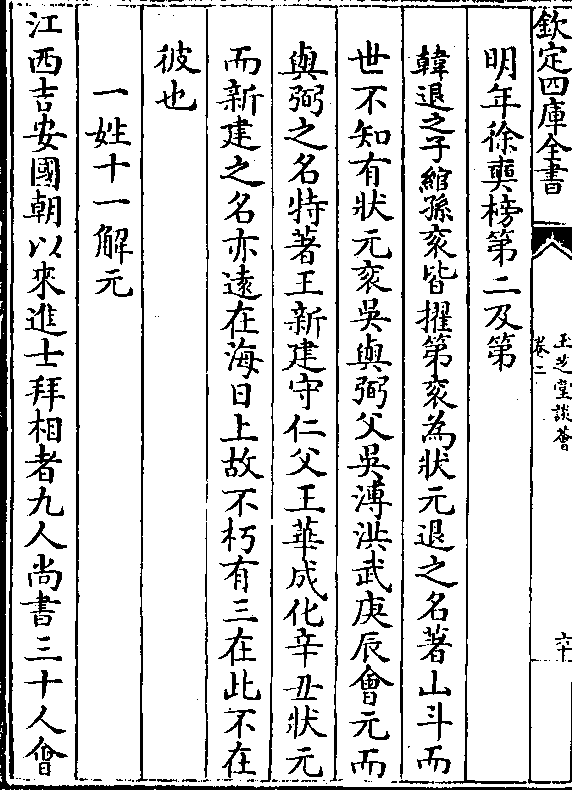 欽定四庫全書
玉芝堂談薈
卷二
六十
明年徐奭榜第二及第
韓退之子綰孫衮皆擢第衮為狀元退之名著山斗而
世不知有狀元衮吳與弼父吳溥洪武庚辰會元而
與弼之名特著王新建守仁父王華成化辛丑狀元
而新建之名亦遠在海日上故不朽有三在此不在
彼也
一姓十一解元
江西吉安國朝以來進士拜相者九人尚書三十人會